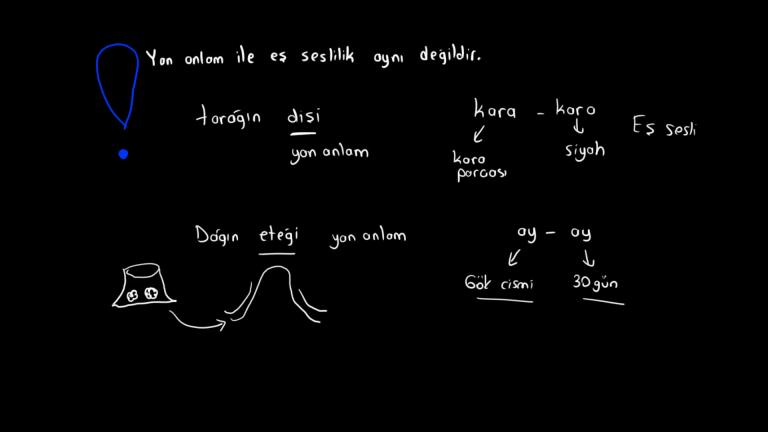 Yan anlam ile eş seslilik aynı değildir.
tarağın dişi
yan anlam
kara - kara
Eş sesli
kara parçası
siyah
Dağın eteği yan anlam
ay - ay
Gök cismi
30 gün